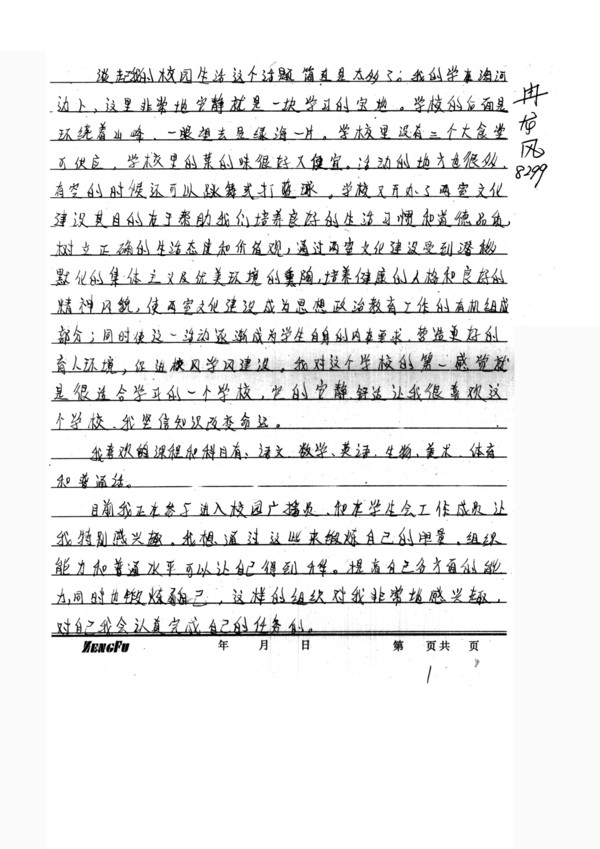 谈起我的校园生活这个话题简直是太多了。我的学在海河
边上，这里非常地安静就是一块学习的宝地。学校的后面是
环绕着山峰，一眼想去是绿海一片。学校里设有三个大食堂
可供应，学校里的菜的味很好又便宜。活动的地方也很多，
有空的时候还可以跳舞或打蓝球。学校又开办了两室文化
建设其目的在于帮助我们培养良好的生活习惯和道德品质，
树立正确的生活态度和价值观，通过两室文化建设受到潜移
默化的集体主义及优美环境的熏陶，培养健康的人格和良好的
精神风貌，使两室文化建设成为思想政治教育工作的有机组成
部分；同时使这一活动逐渐成为学生自身的内在要求，营造更好的
育人环境，促进校风学风建设。我对这个学校的第一感觉就
是很适合学习的一个学校，它的安静 让我很喜欢这
个学校，我坚信知识改变命运。
我喜欢的课程和科目有：语文、数学、英语、生物、美术、体育
和普通话。
目前我正在参与进入校园广播员，和在学生会工作成员让
我特别感兴趣，我想通过这些来锻炼自己的胆量，组织
能力和普通水平可以让自己得到 。提高自己多方面的能
力，同时也锻炼自己，这样的组织对我非常地感兴趣，
对自己我会认真完成自己的任务的。
冉龙凤
8299
ZENGFU 年 月 日 第 页共 页
1